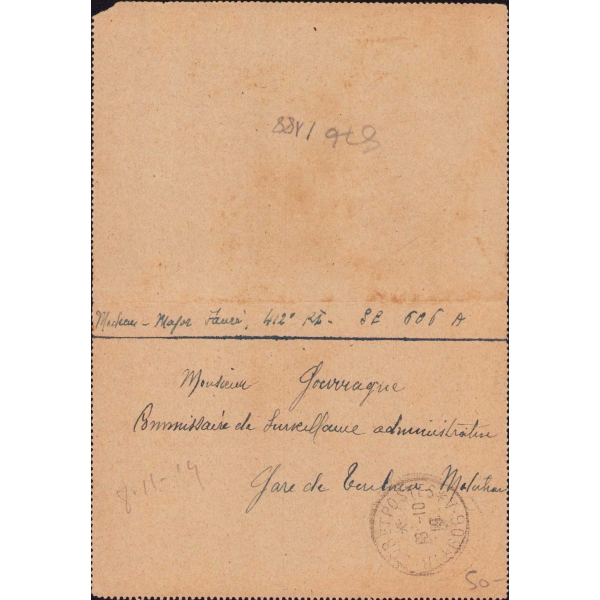 876/188
Médecin-Major Fauré, 412e RI - SP 606 A
Monsieur Gourrague
Commissaire de Surveillance administrative
Gare de Toulouse - Matabiau
8-11-19
TRESOR ET POSTES
-10
19
50-